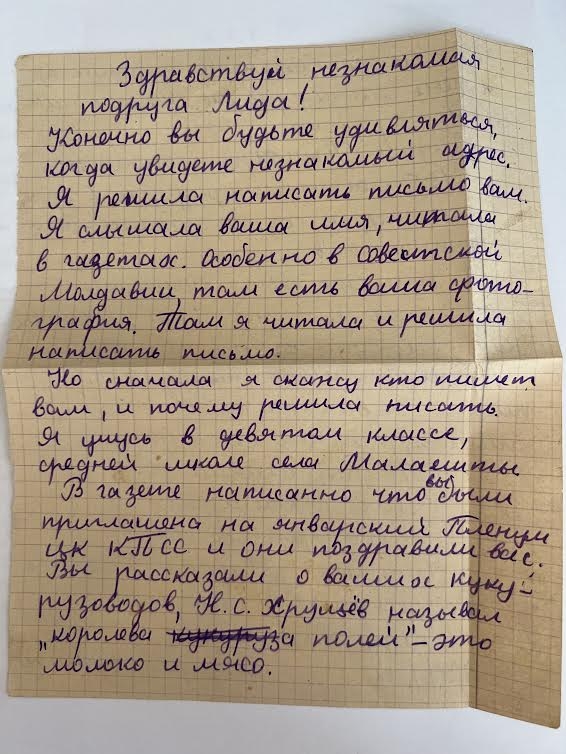 Здравствуй незнакомая
подруга Лида!
Конечно вы будьте удивляться,
когда увидете незнакомый адрес.
Я решила написать письмо вам.
Я слышала ваша имя, читала
в газетах. Особенно в Советской
Молдавии, там есть ваша фото-
графия. Там я читала и решила
написать письмо.
Но сначала я скажу кто пишет
вам, и почему решила писать.
Я учусь в девятом классе,
средней школе села Малаешты.
В газете написанно что вы были
приглашена на январский Пленум
ЦК КПСС и они поздравили вас.
Вы рассказали о ваших куку-
рузоводов, Н.С. Хрущёв называл
"королева полей" – это
молоко и мясо.